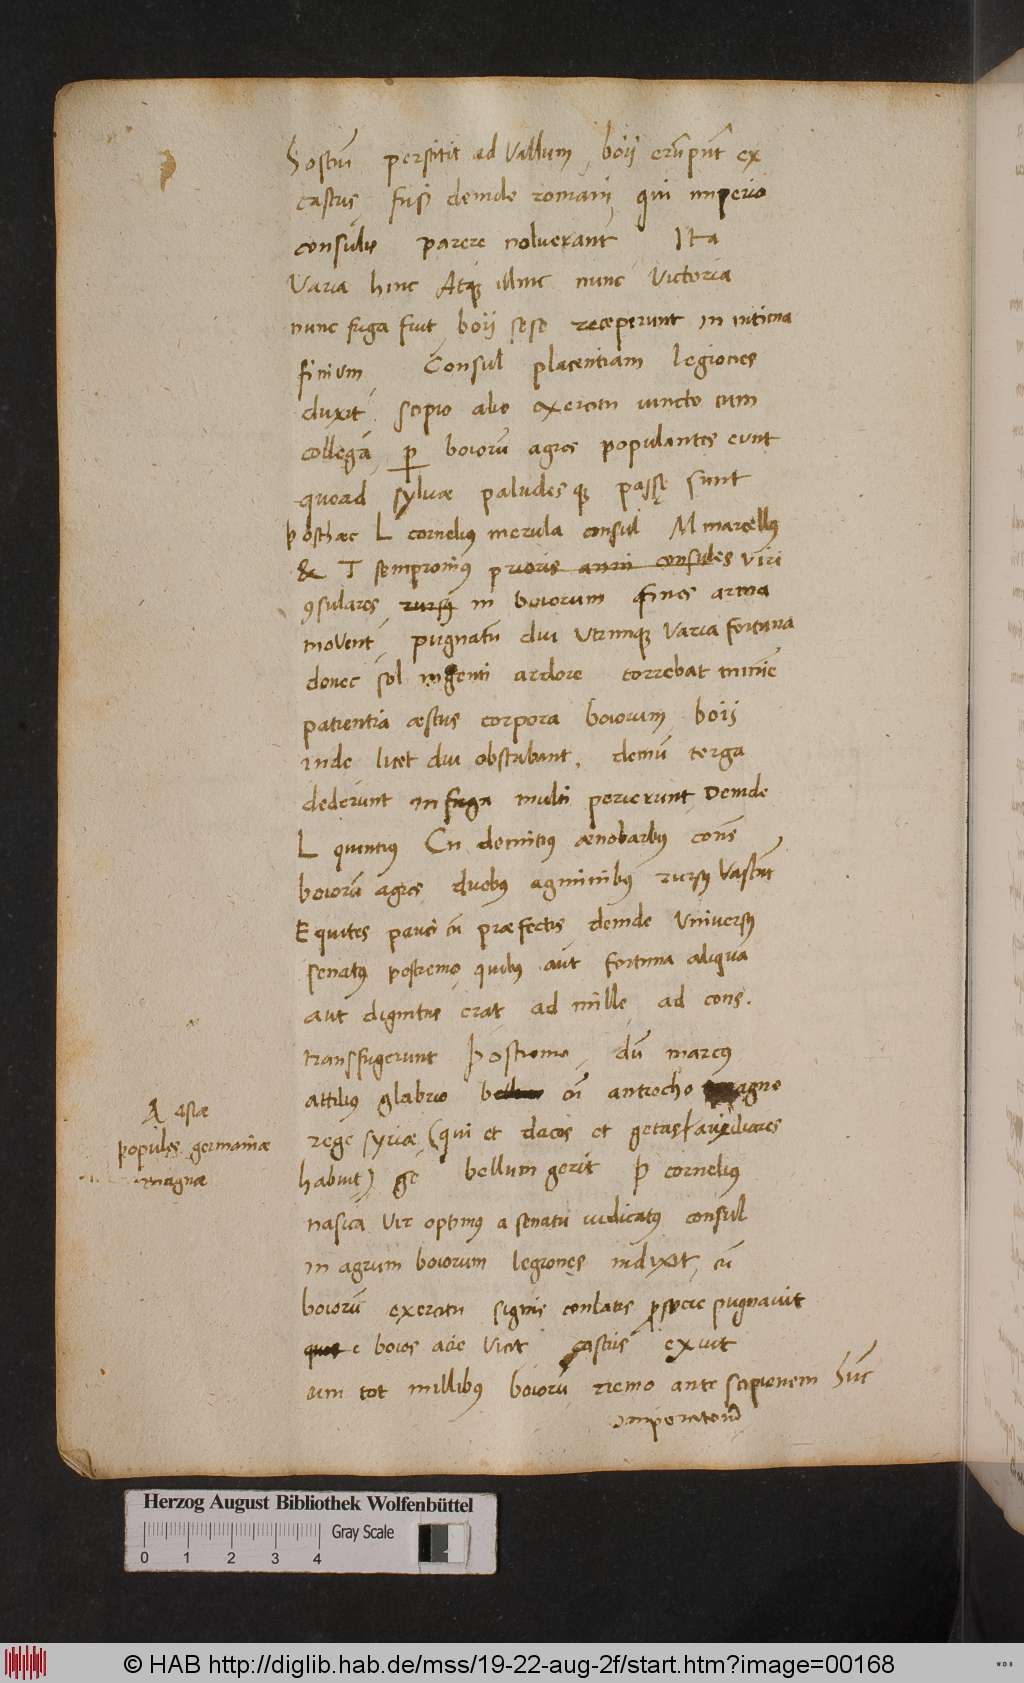 hostiū perstitit ad vallum, boij erūpūt ex
castris, fusi deinde romani, qui imperio
consulis parere noluerant Ita
varia hinc Atque illinc nunc victoria
nunc fuga fuit, boij sese receperunt in intima
finium, Consul placentiam legiones
duxit, scipio alio exercitu iuncto cum
collega, per boiorū agros populantes eunt
quoad syluae paludesque passę sunt
posthaec L cornelius merula consul M marcellus
& T sempronius prioris anni consules viri
consulares, rursus in boiorum fines arma
movent, pugnatū diu utrimque varia fortuna
donec sol ingenti ardore torrebat minime
patientia aestus corpora boiorum boij
inde licet diu obstabant, demū terga
dederunt in fuga multi perierunt Deinde
L quintius Cn domitius aenobarbus cons
boiorū agros duobus agminibus rursus vastāt
Equites pauci cū praefectis, deinde universus
senatus postremo, quibus aut fortuna aliqua
aut dignitas erat, ad mille, ad cons.
transfugerunt Postremo, dū marcus
attilius glabrio bellum cū antiocho magno
rege syriae (qui et dacos et getas auxiliares
habuit) bellum gerit P cornelius
nasica vir optimus a senatu iudicatus consul
in agrum boiorum legiones indixit, cū
boiorū exercitu signis conlatis prospere pugnavit
boios acie vicit castris exuit
cum tot millibus boiorū nemo ante scipionem hūc
imperatorū
A astae
populos germaniae
magnae
Herzog August Bibliothek Wolfenbüttel
Gray Scale
0 1 2 3 4
© HAB http://diglib.hab.de/mss/19-22-aug-2f/start.htm?image=00168